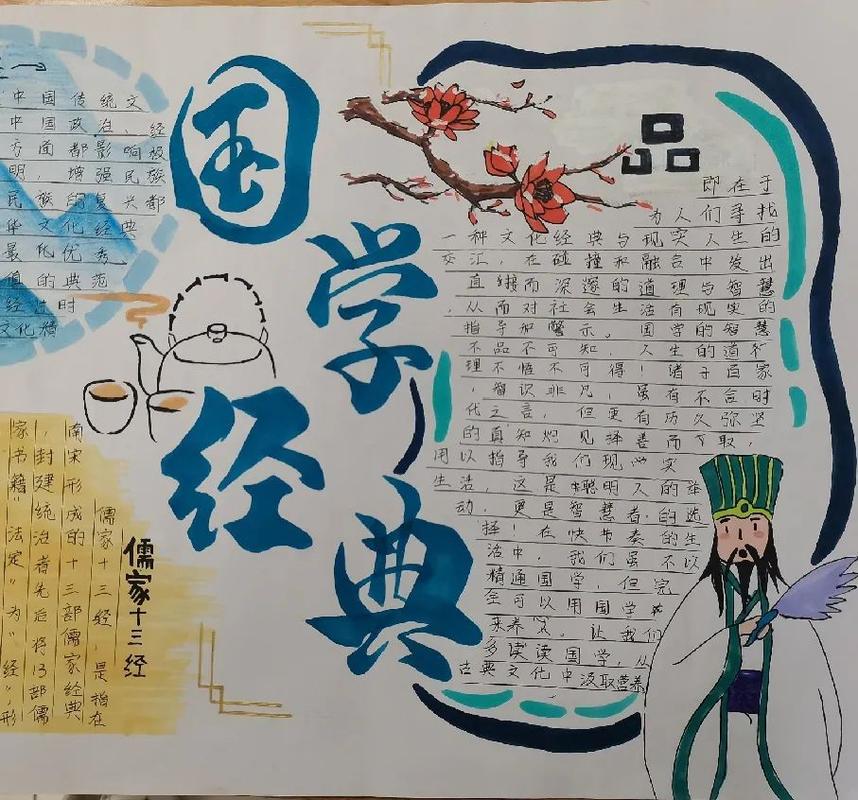 中国传统文
中国政治、经
方面都影响极
明,增强民族
民族的复兴都
华文化经典
最优秀
值的典范
经过时
文化精
国学经典
品
即在于
为人们寻找
一种文化经典与现实人生的
交汇,在碰撞和融合中发出
直接而深邃的道理与智慧
,从而对社会生活有现实的
指导和警示。国学的智慧
不品不可知,人生的道
理不悟不可得!诸子百家
,智识非凡,虽有不合时
代之言,但更有历久弥坚
的真知灼见择善而取,
用以指导我们现实
生活,这是聪明人的举
动,更是智慧者的选
择!在快节奏的生
活中,我们虽不以
精通国学,但完
全可以用国学
来养,让我们
多读读国学,从
古典文化中汲取营养
儒家十三经
儒家十三经,是指在
南宋形成的十三部儒家经典
,封建统治者先后将13部儒
家书籍"法定"为"经",形